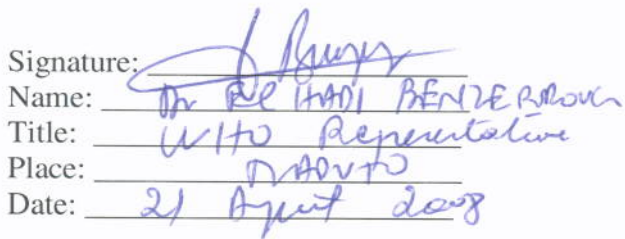 Signature:
Name: Dr El HADI BENZERROUGH
Title: WHO Representative
Place: MAPUTO
Date: 21 August 2008